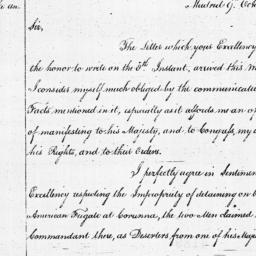 Madrid 9. Octo
Sir,
The Letter which your Excellency
the honor to write on the 5th Instant, arrived this m
I consider myself much obliged by the communicatio
Facts mentioned in it, especially as it affords me an o
of manifesting to his Majesty, and to Congress, my a
his Rights, and to their Orders.
I perfectly agree in Sentimen
Excellency respecting the Impropriety of detaining on b
American Frigate at Corunna, the two Men claimed
Commandant there, as Deserters from one of his Maj